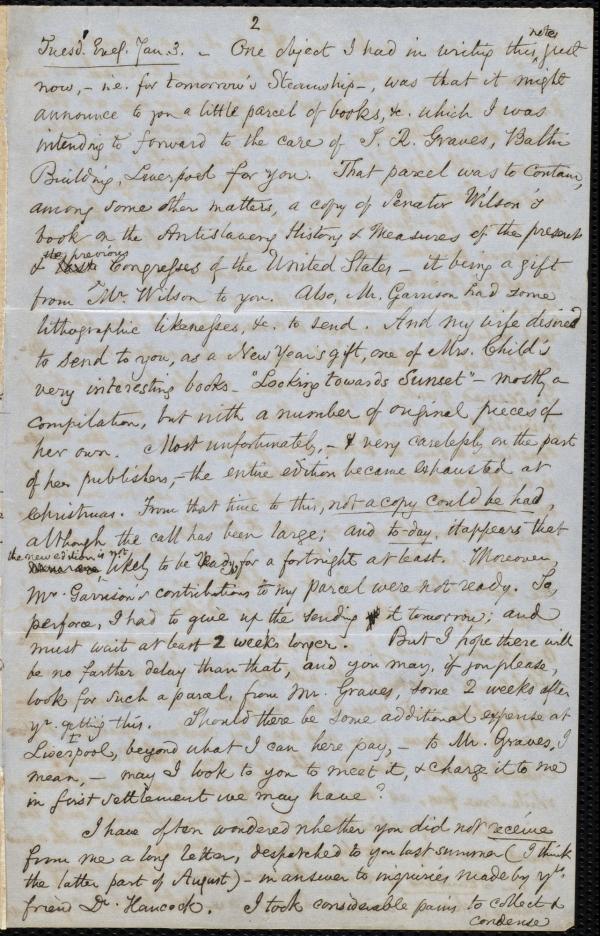 2
Tuesd. Eveg. Jan. 3. – One object I had in writing this note, just
now, – i.e. for tomorrow's Steamship –, was that it might
announce to you a little parcel of books, &c. which I was
intending to forward to the care of S. R. Graves, Baltic
Building, Liverpool for you. That parcel was to contain,
among some other matters, a copy of Senator Wilson's
book on the Antislavery History & Measures of the present
& the previous Congresses of the United States – it being a gift
from Mr. Wilson to you. Also, Mr. Garrison had some
lithographic likenesses, &c. to send. And my wife desired
to send to you, as a New Year's gift, one of Mrs. Child's
very interesting books – "Looking towards Sunset" – mostly a
compilation, but with a number of original pieces of
her own. Most unfortunately, – & very carelessly on the part
of her publishers, – the entire edition became exhausted at
Christmas. From that time to this, not a copy could be had,
although the call has been large; and to-day, it appears that
the new edition is not likely to be ready for a fortnight at least. Moreover,
Mr. Garrison's contributions to my parcel were not ready. So,
perforce, I had to give up the sending it tomorrow; and
must wait at least 2 weeks longer. But I hope there will
be no farther delay than that, and you may, if you please,
look for such a parcel, from Mr. Graves, some 2 weeks after
yr. getting this. Should there be some additional expense at
Liverpool, beyond what I can here pay, – to Mr. Graves, I
mean, – may I look to you to meet it, & charge it to me
in first settlement we may have?
I have often wondered whether you did not receive
from me a long letter, despatched to you last summer (I think
the latter part of August) – in answer to inquiries made by yr.
friend Dr. Hancock. I took considerable pains to collect &
condense